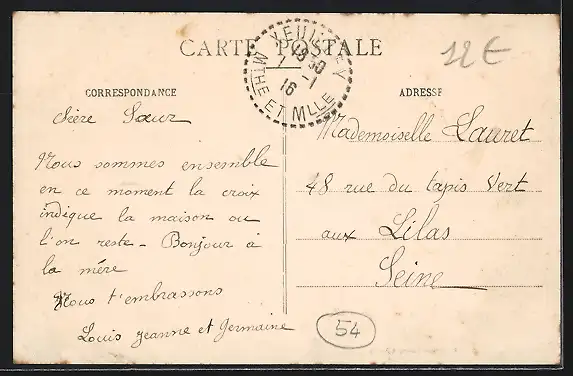 CARTE POSTALE
12€
LEUILLEY
18 30
7 -1
16
MTHE ET MLLE
CORRESPONDANCE
ADRESSE
chère Sœur
Nous sommes ensemble
en ce moment la croix
indique la maison ou
l'on reste - Bonjour à
la mère
Nous t'embrassons
Louis Jeanne et Germaine
Mademoiselle Lauret
48 rue du tapis Vert
aux Lilas
Seine
54